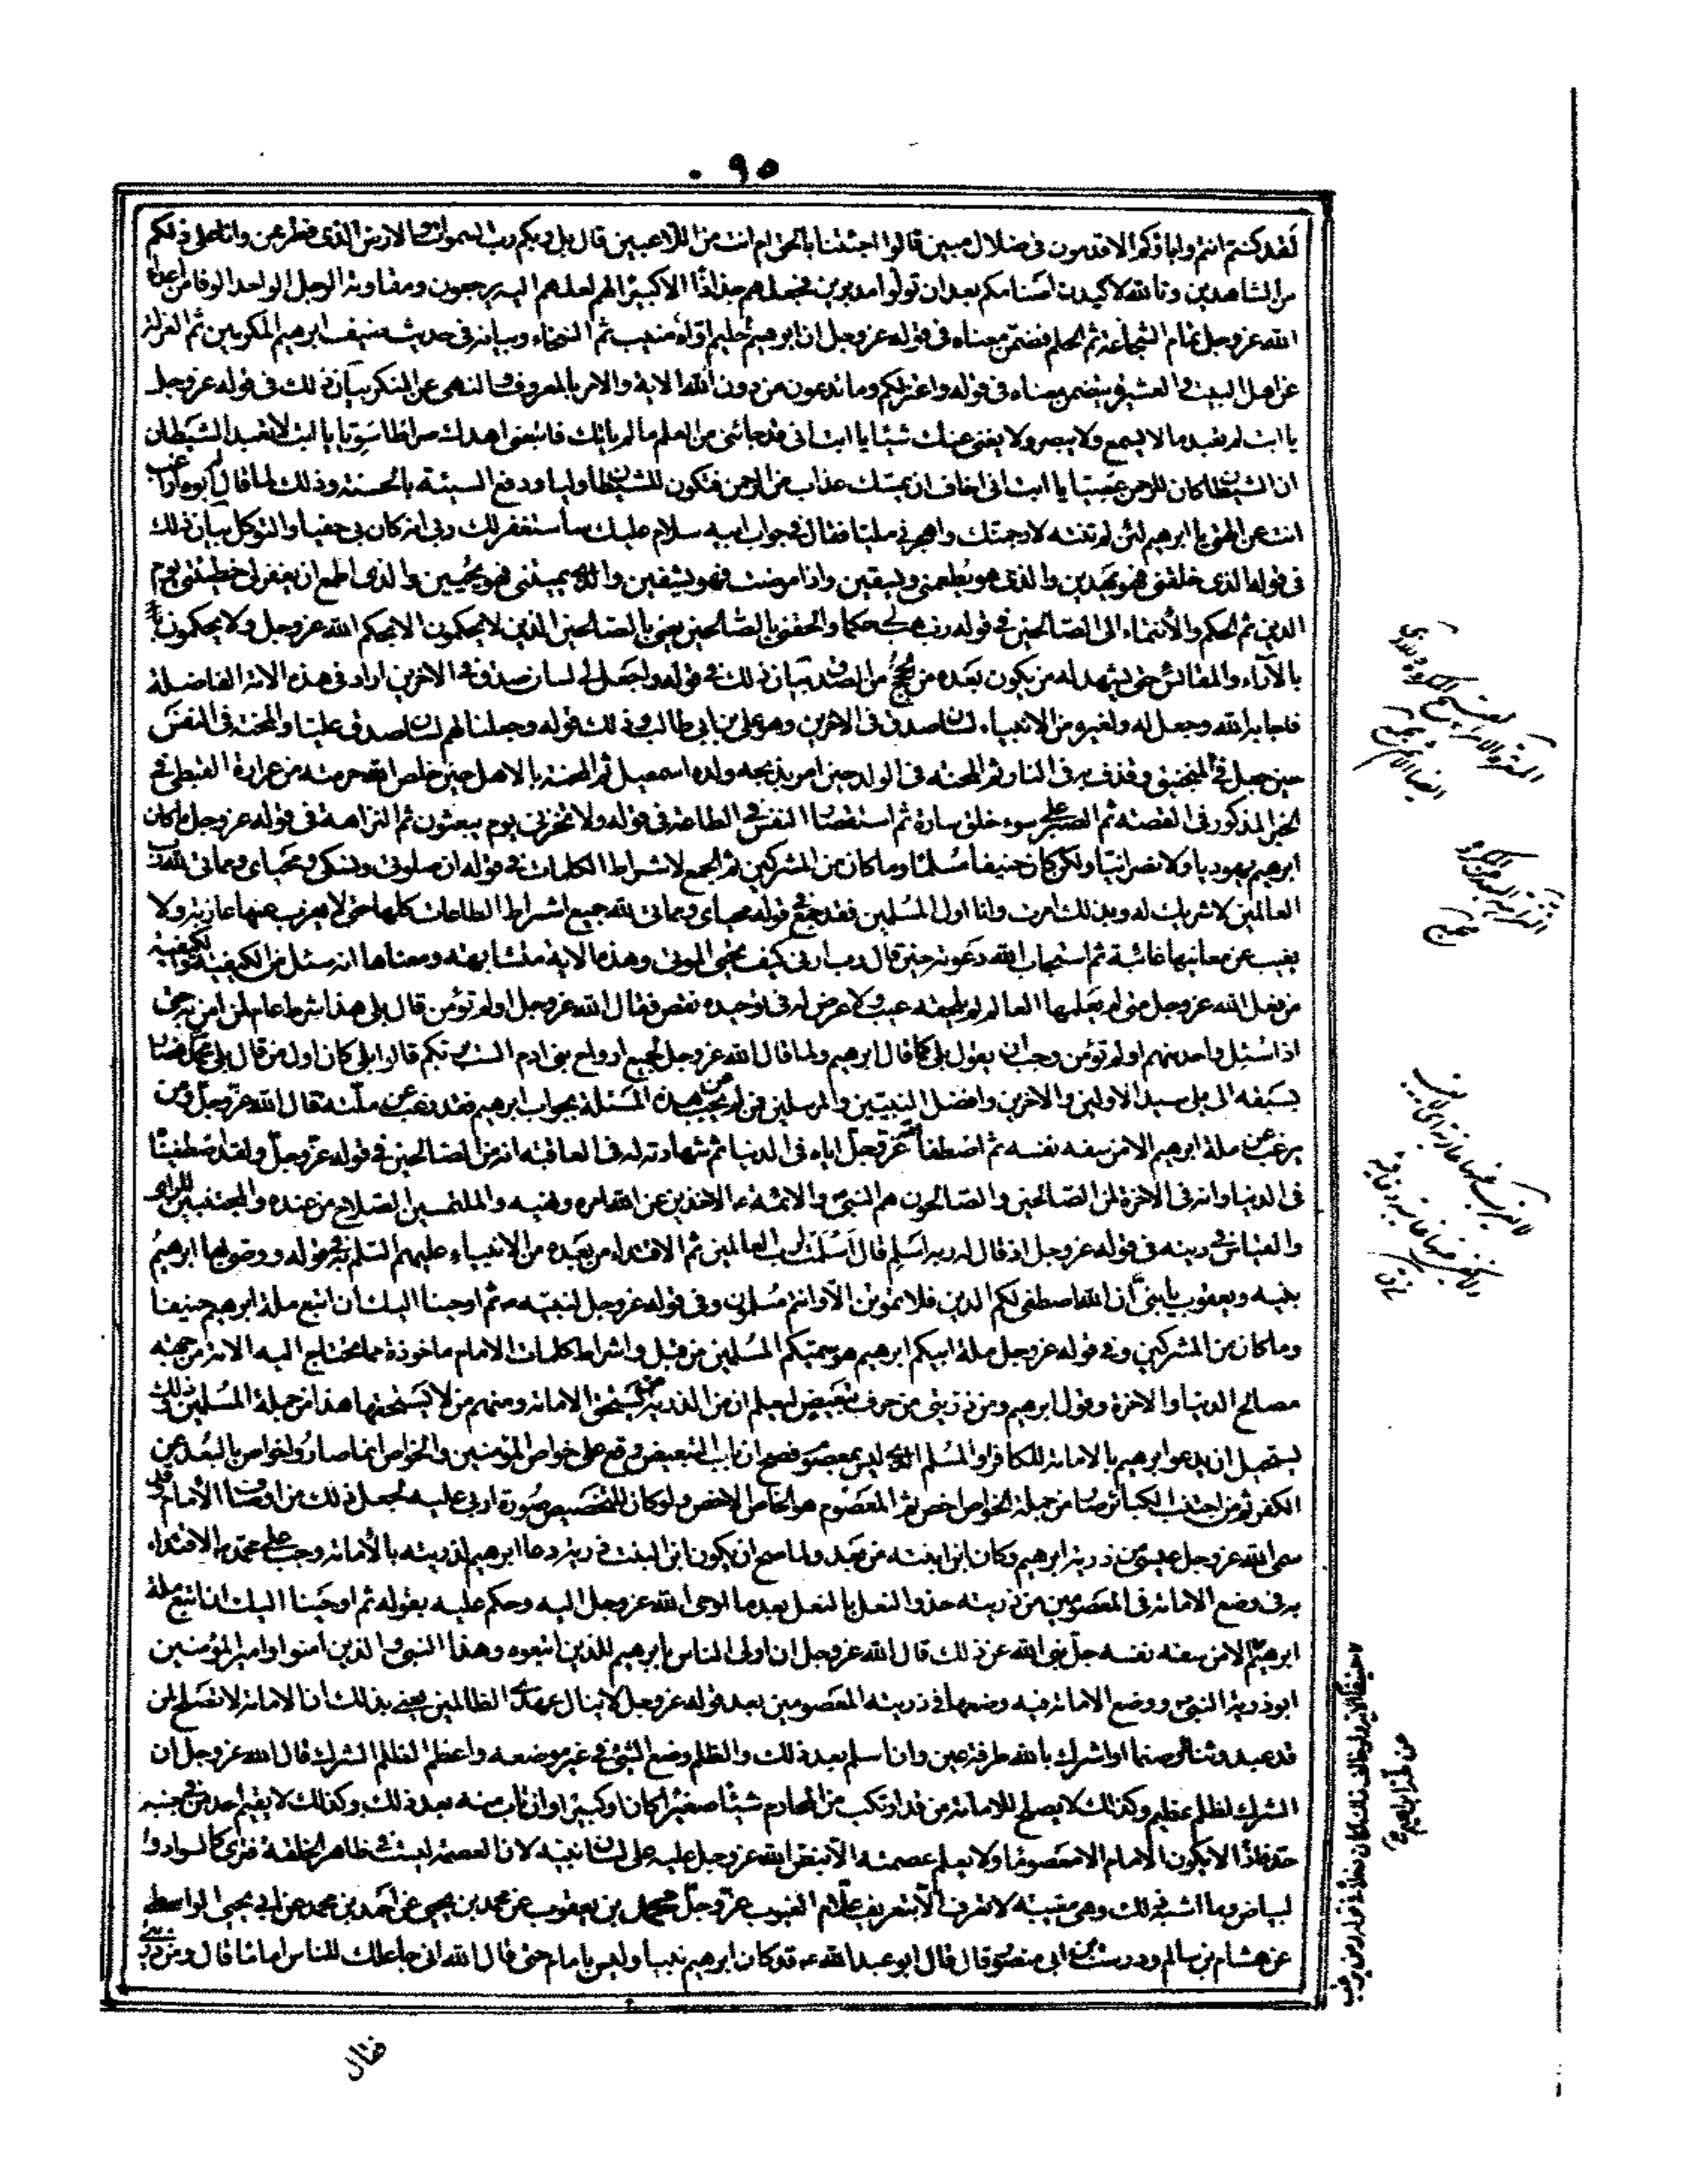 ٩٥
لقد كنتم انتم واباؤكم الاقدمون فى ضلال مبين قالوا اجئتنا بالحق ام انت من اللاعبين قال بل ربكم رب السموات والارض الذى فطرهن وانا على ذلكم
من الشاهدين وتالله لاكيدن اصنامكم بعد ان تولوا مدبرين فجعلهم جذاذًا الا كبيرًا لهم لعلهم اليه يرجعون ومقاومة الرجل الواحد الوفا من اعداء
الله عز وجل تمام الشجاعة ثم الحلم مضمن معناه فى قوله عز وجل ان ابرهيم لحليم اوّاه منيب ثم السخاء وبيانه فى حديث ضيف ابرهيم المكرمين ثم العزلة
عن اهل البيت والعشيرة مضمن معناه فى قوله واعتزلكم وما تدعون من دون الله الاية والامر بالمعروف والنهى عن المنكر بيان ذلك فى قوله عز وجل
يا ابت لم تعبد ما لا يسمع ولا يبصر ولا يغنى عنك شيئا يا ابت انى قد جائنى من العلم ما لم ياتك فاتبعنى اهدك صراطا سويّا يا ابت لا تعبد الشيطان
ان الشيطان كان للرحمن عصيّا يا ابت انى اخاف ان يمسّك عذاب من الرحمن فتكون للشيطان وليا ودفع السيئة بالحسنة وذلك لما قال له ابوه اراغب
انت عن الهتى يا ابرهيم لئن لم تنته لارجمنّك واهجرنى مليّا فقال فى جواب ابيه سلام عليك ساستغفر لك ربى انه كان بى حفيا والتوكل بيان ذلك
فى قوله الذى خلقنى فهو يهدين والذى هو يطعمنى ويسقين واذا مرضت فهو يشفين والذى يميتنى ثم يحيين والذى اطمع ان يغفر لى خطيئتى يوم
الدين ثم الحكم والانتماء الى الصّالحين فى قوله رب هب لى حكما والحقنى بالصّالحين يعنى بالصّالحين الذين لا يحكمون الا بحكم الله عز وجل ولا يحكمون
بالآراء والمقائيس حتى يشهد له من يكون بعده من الحجج بالصدق بيان ذلك فى قوله واجعل لى لسان صدق فى الاخرين اراد فى هذه الامة الفاضلة
فاجابه الله وجعل له ولغيره من الانبياء لسان صدق فى الاخرين وهو على بن ابى طالب وذلك قوله وجعلنا لهم لسان صدق عليّا والمحنة فى النفس
حين جعل فى المنجنيق وقذف به فى النار ثم المحنة فى الولد حين امر بذبح ولده اسمعيل ثم المحنة بالاهل حين خلص الله حرمته من عرارة القبطى فى
الخبر المذكور فى القصّة ثم الصبر على سوء خلق سارة ثم استقصار النفس فى الطاعة فى قوله ولا تخزنى يوم يبعثون ثم النزاهة فى قوله عز وجل ما كان
ابرهيم يهوديا ولا نصرانيّا ولكن كان حنيفا مسلمًا وما كان من المشركين ثم الجمع لاشراط الكلمات فى قوله ان صلوتى ونسكى ومحياى ومماتى لله رب
العالمين لا شريك له وبذلك امرت وانا اول المسلمين فقد جمع فى قوله محياى ومماتى لله جميع اشراط الطاعات كلها حتى لا يعزب عنها عازبة ولا
يغيب عن معانيها غائبة ثم استجاب الله دعوته حين قال رب ارنى كيف تحيى الموتى وهذه الاية متشابهة ومعناها انه سئل عن الكيفية والكيفية
من فعل الله عز وجل متى لم يعلمها العالم لم يلحقه عيب ولا عرض له فى توحيده نقص فقال الله عز وجل اولم تؤمن قال بلى هذا شرط عام لمن امن به متى
اذا سئل واحد منهم اولم تؤمن وجب ان يقول بلى كما قال ابرهيم ولما قال الله عز وجل لجميع ارواح بنى ادم الست بربكم قالوا بلى كان اول من قال بلى محمد فصار
بسبقه الى بلى سيد الاولين والاخرين وافضل النبيين والمرسلين فمن لم يجب عن هذه المسئلة بجواب ابرهيم فقد رغب عن ملّته قال الله عز وجلّ ومن
يرغب عن ملة ابرهيم الا من سفه نفسه ثم اصطفاء الله عز وجلّ اياه فى الدنيا ثم شهادته له فى العاقبة انه من الصالحين فى قوله عز وجلّ ولقد اصطفيناه
فى الدنيا وانه فى الاخرة لمن الصّالحين والصّالحون هم النبى والائمة الاخذين عن الله امره ونهيه والملتمسين الصلاح من عنده والمجتنبين للراى
والقياس فى دينه فى قوله عز وجل اذ قال له ربه اسلم قال اسلمت لرب العالمين ثم الاقتداء من بعده من الانبياء عليهم السّلم به فى قوله ووصى بها ابرهيم
بنيه ويعقوب يا بنىّ ان الله اصطفى لكم الدين فلا تموتن الّا وانتم مسلمون وفى قوله عز وجل لنبيّه ثم اوحينا اليك ان اتبع ملة ابرهيم حنيفا
وما كان من المشركين وفى قوله عز وجل ملة ابيكم ابرهيم هو سمّيكم المسلمين من قبل واشراط كلمات الامام ماخوذة مما يحتاج اليه الامة من جهة
مصالح الدنيا والاخرة وقول ابرهيم ومن ذريتى من حرف تبعيض ليعلم ان من الذرية من يستحق الامامة ومنهم من لا يستحقها هذا من جملة المسلمين وذلك
يستحيل ان يدعو ابرهيم بالامامة للكافر او المسلم الذى ليس بمعصوم فصح ان باب التبعيض وقع على خواص المؤمنين والخواص انما صاروا خواص بالبعد من
الكفر ثم من اجتنب الكبائر صار من جملة الخواص اخص ثم المعصوم هو الخاص الاخص ولو كان للتخصيص صورة اربى عليه لجعل ذلك من اوصاف الامام وقد
سمى الله عز وجل عيسى من ذرية ابرهيم وكان ابن ابنته من بعد ولما صح ان يكون ابن البنت ذرية ودعا ابرهيم لذريته بالامامة وجب على محمد الاقتداء
به فى وضع الامامة فى المعصومين من ذريته حذو النعل بالنعل بعد ما اوحى الله عز وجل اليه وحكم عليه بقوله ثم اوحينا اليك ان اتبع ملة
ابرهيم الا من سفه نفسه جلّ نبى الله عن ذلك قال الله عز وجل ان اولى الناس بابرهيم للذين اتبعوه وهذا النبى والذين امنوا وامير المؤمنين
ابو ذرية النبى ووضع الامامة فيه وضعها فى ذريته المعصومين بعد قوله عز وجل لا ينال عهدى الظالمين يعنى بذلك ان الامامة لا تصلح لمن
قد عبد وثنا او صنما او اشرك بالله طرفة عين وان اسلم بعد ذلك والظلم وضع الشىء فى غير موضعه واعظم الظلم الشرك قال الله عز وجل ان
الشرك لظلم عظيم وكذلك لا يصلح للامامة من قد ارتكب من المحارم شيئًا صغيرا كان او كبيرا وان تاب منه بعد ذلك وكذلك لا يقيم احد من فى جنبه
حد فاذًا لا يكون الامام الا معصوما ولا يعلم عصمته الّا بنص الله عز وجل عليه على لسان نبيه لان العصمة ليست فى ظاهر الخلقة فترى كالسواد وا
لبياض وما اشبه ذلك وهى مغيبة لا تعرف الّا بتعريف علّام الغيوب عزّ وجلّ محمد بن يعقوب عن محمد بن يحيى عن احمد بن محمد عن ابى يحيى الواسطى
عن هشام بن سالم ودرست بن ابى منصور قال قال ابو عبد الله قد كان ابرهيم نبيا وليس بامام حتى قال الله انى جاعلك للناس اماما قال ومن ذريتى
فقال
حنيفا الاية ولو خالف ذلك لكان داخلا فى قوله ومن يرغب
عن ملة ابراهيم